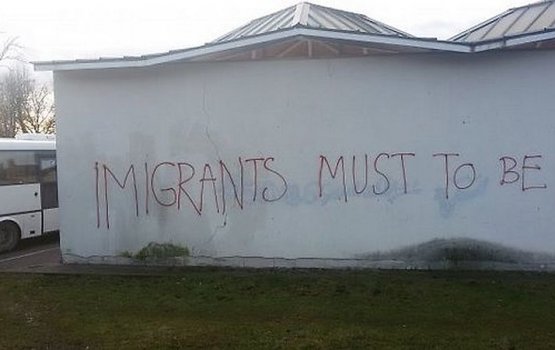 iMIGRANTS MUST TO BE